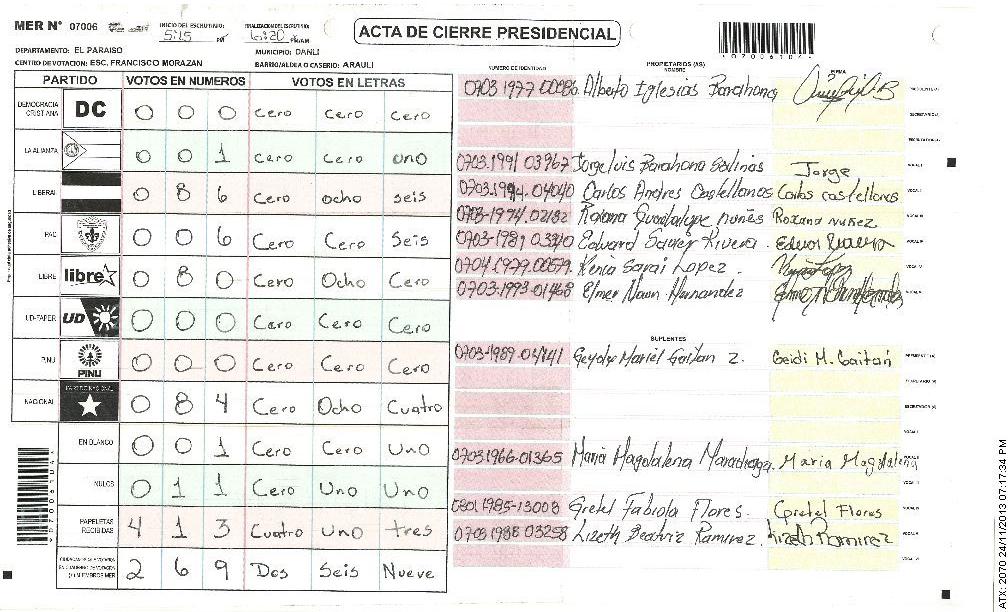 MER N° 07006
INICIO DEL ESCRUTINIO: 5:15 PM
FINALIZACION DEL ESCRUTINIO: 6:20 PM/AM
ACTA DE CIERRE PRESIDENCIAL
DEPARTAMENTO: EL PARAISO
MUNICIPIO: DANLI
CENTRO DE VOTACION: ESC. FRANCISCO MORAZAN
BARRIO/ALDEA O CASERIO: ARAULI
PARTIDO VOTOS EN NUMEROS VOTOS EN LETRAS
DEMOCRACIA CRISTIANA DC 0 0 0 Cero Cero Cero
LA ALIANZA 0 0 1 Cero Cero uno
LIBERAL 0 8 6 Cero ocho seis
PAC 0 0 6 Cero Cero Seis
LIBRE libre 0 8 0 Cero Ocho Cero
UD-FAPER UD 0 0 0 Cero Cero Cero
PINU PINU 0 0 0 Cero Cero Cero
NACIONAL PARTIDO NACIONAL 0 8 4 Cero Ocho Cuatro
EN BLANCO 0 0 1 Cero Cero Uno
NULOS 0 1 1 Cero Uno Uno
PAPELETAS RECIBIDAS 4 1 3 Cuatro Uno tres
2 6 9 Dos Seis Nueve
NUMERO DE IDENTIDAD PROPIETARIOS (AS) NOMBRE FIRMA
0703 1977 00986 Alberto Iglesias Barahona
0703.1991 03967 Jorge luis Barahona Salinas Jorge
0703.1994.04040 Carlos Andres Castellanos Carlos castellanos
0703-1974-02182 Roxana Guadalupe nuñes Roxana nuñez
0703-1981 03340 Edward Rivera
0704 1979.00579 Kenia Sarai Lopez
0703-1993-01468 Elmer Naun Hernandez
SUPLENTES
0703-1989-04141 Geydy Mariel Gaitan Z. Geidi M. Gaitán
0703 1966-01365 Maria Magdalena Maradiaga. Maria Magdalena
0801 1985-13008 Gretel Fabiola Flores. Gretel Flores
0703 1988 03258 Lizeth Beatriz Ramirez. Lizeth Ramirez
*07006104*
ATX: 2070 24/11/2013 07:17:34 PM